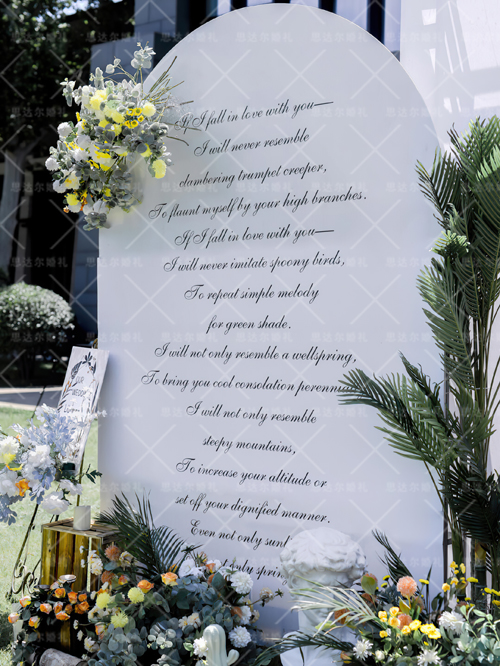 If I fall in love with you—
I will never resemble
clambering trumpet creeper,
To flaunt myself by your high branches.
If I fall in love with you—
I will never imitate spoony birds,
To repeat simple melody
for green shade.
I will not only resemble a wellspring,
To bring you cool consolation
I will not only resemble
steepy mountains,
To increase your altitude or
set off your dignified manner.
Even not only
only spring
思达尔婚礼